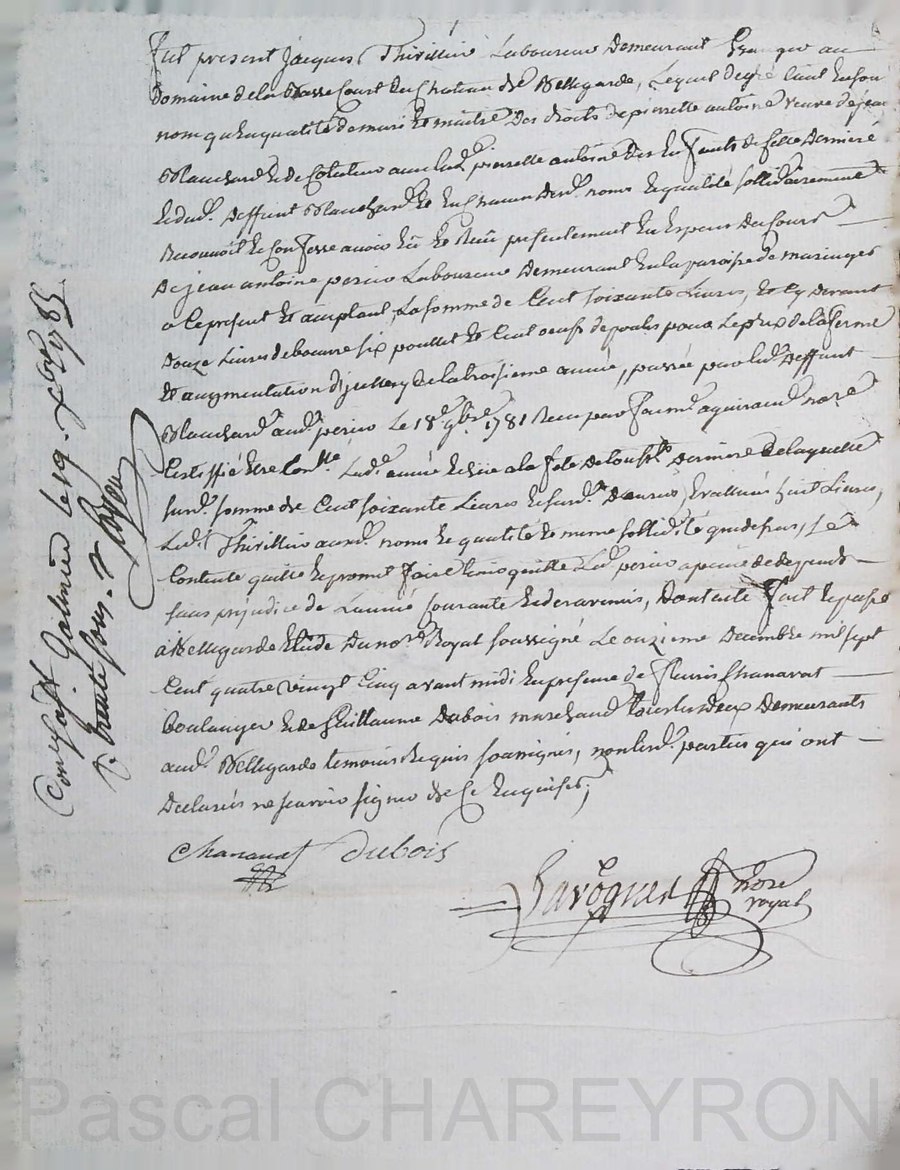 Fut present Jacques Thivillier Laboureur Demeurant Granger au
Domaine de la Basse Court du Chateau de Bellegarde, Lequel de gré tant En son
nom qu'en qualité de mari Et maitre Des droits de pierrette antoine veuve de jean
Blanchard Et de Cotuteur avec lad. pierrette antoine Des Enfants de Celle Derniere
Et dud. deffunt Blanchard Et En Chacun Desd. noms Et qualité sollidairement
Reconnoit Et Confesse avoir Eu Et Reçu presentement En Especes Du Cours
De jean antoine perier Laboureur Demeurant En la paroisse de maringes
a Ce present Et acceptant, La somme de Cent soixante Livres, Et Cy devant
Douze Livres de beurre six poullet Et Cent oeufs de poules pour Le prix de la ferme
Et augmentation de la troisieme année, passée par led. Deffunt
Blanchard aud. perier Le 18e 9bre 1781 Recu par aquiraud nore
Certiffié Etre Conllé Lad. année Echue a la fete de Toussts Derniere De laquelle
susd. somme de Cent soixante Livres Et susd. Denrées, Evalluées huit Livres,
Led. Thivillier auxd. noms Et qualité Et meme sollidité que dessus, se
Contente quitte Et promet faire tenir quitte Led. perier a peine de depends
sans prejudice de L'année Courante Et des avenirs, Dont acte Fait Et passé
a Bellegarde Etude Du nore Royal soussigné Le onzieme Decembre mil sept
Cent quatre vingt Cinq avant midi En presence de fleuris Chanavat
boulanger Et de Guillaume Dubois marchand tous les deux Demeurants
aud. Bellegarde temoins Requis soussignés, non lesd. parties qui ont
Declarés ne scavoir signer de Ce Enquises;
Chanavat Dubois
Javogues nore
royal
Con a St Galmier le 19 Xbre 1785
R. trente sous.
Pascal CHAREYRON